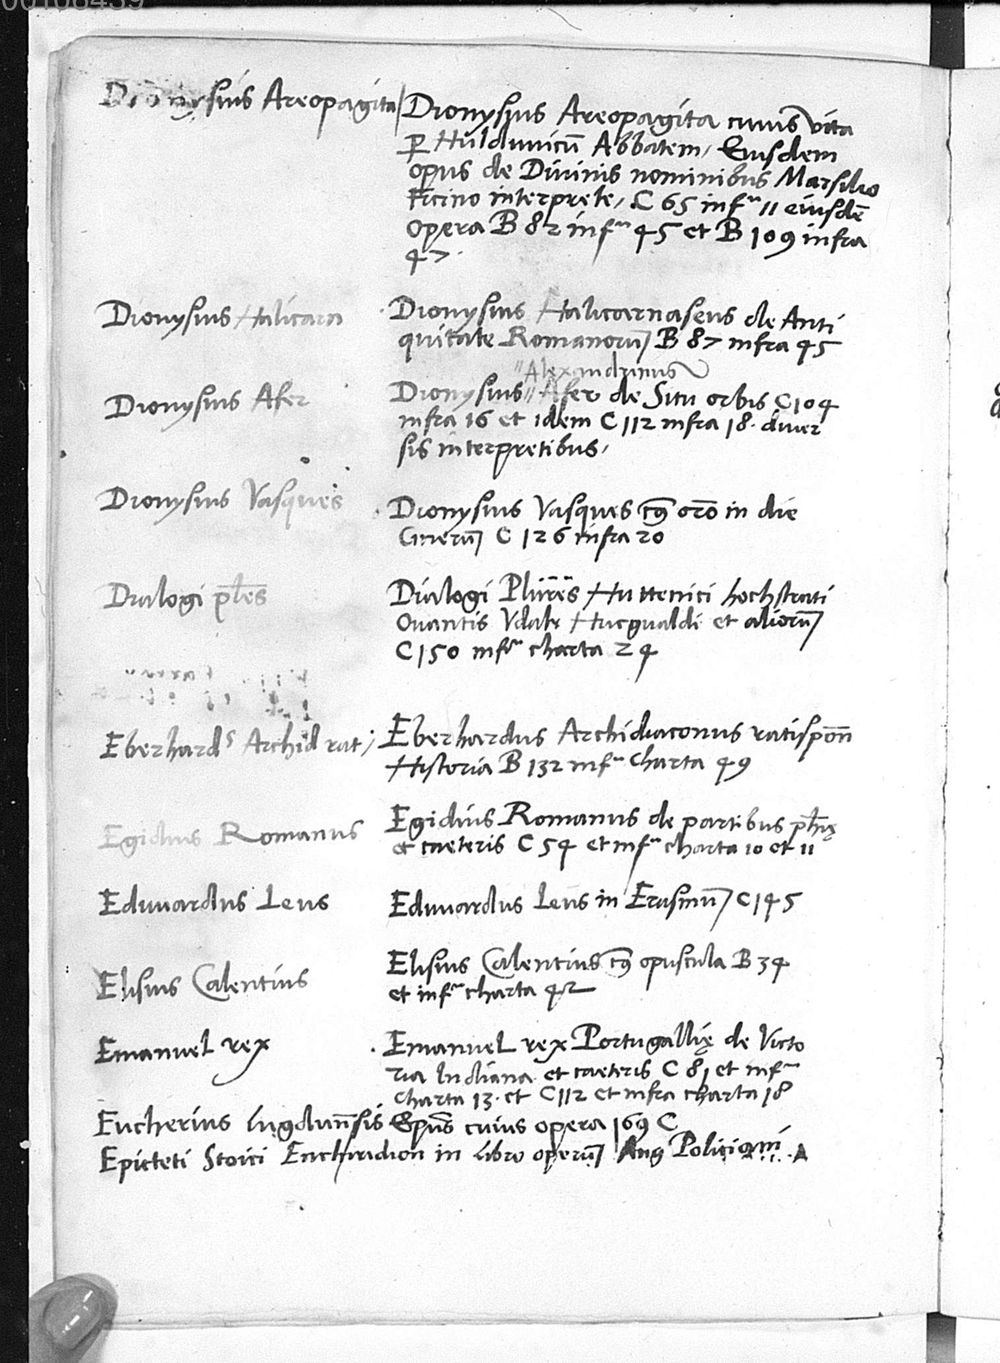 00108439
Dionysius Areopagita
Dionysius Areopagita cuius vita
ꝑ Hulduuicū Abbatem, Eiusdem
opus de Diuinis nominibus Marsilio
Ficino interprete, C 65 infᵃ 11 eiusdē
opera B 82 infᵃ 45 et B 109 infra
47.
Dionysius Halicarn
Dionysius Halicarnaseus de Anti
quitate Romanorū B 87 infra 45
Alexandrinus
Dionysius Afer
Dionysius Afer de Situ orbis C 104
infra 16 et idem C 112 infra 18. diuer
sis interpretibus,
Dionysius Vasques
Dionysius Vasques orō in die
Cinerū C 126 infra 20
Dialogi pl̄es
Dialogi Plures Huttenici hochstrati
Ouantis Vdalr Hucgualdi et aliorū
C 150 infᵃ charta 24
Eberhardˢ Archid rat,
Eberhardus Archidiaconus ratispoñ
Historia B 132 infᵃ charta 49
Egidius Romanus
Egidius Romanus de partibus ph̄ię
et caeteris C 54 et infᵃ charta 10 et 11
Eduuardus Leus
Eduuardus Leus in Erasmū C 145
Elisius Calentius
Elisius Calentius opuscula B 34
et infᵃ charta 42
Emanuel rex
Emanuel rex Portugallię de Victo
ria Indiana et caeteris C 81 et infᵃ
charta 13. et C 112 et infra charta 18
Eucherius lugduneñsis Ep̄us cuius opera 169 C
Epicteti Stoici Enchiridion in libro operū Ang Politiani. A